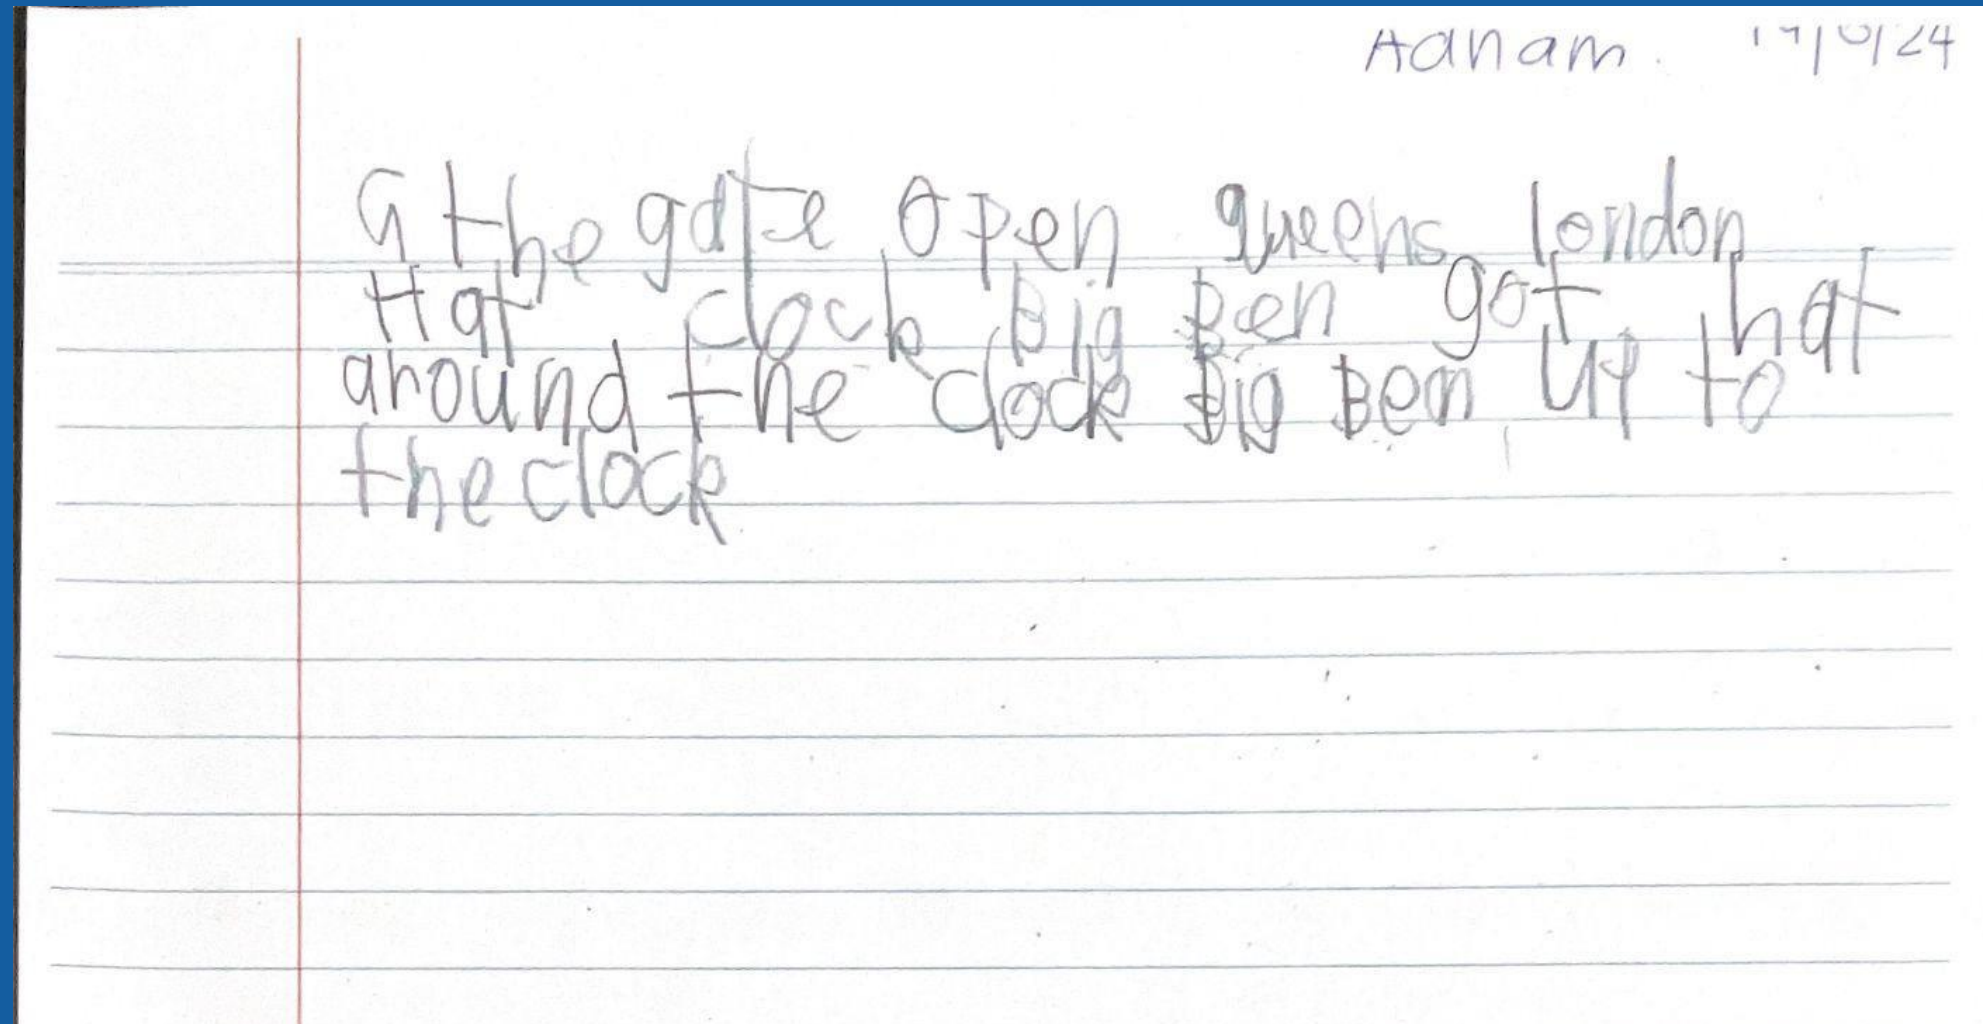 Adnam.
G the gate open queens london
Hat clock Big Ben got hat
around the clock Big Ben up to
the clock